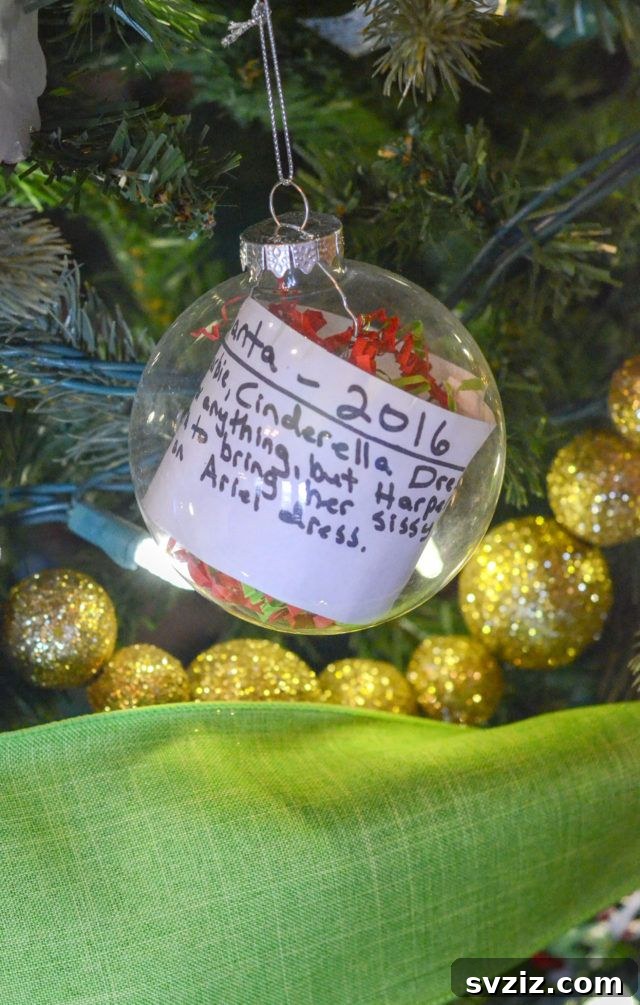 anta - 2016
bie, Cinderella Dre
anything, but Harpe
to bring her sissy
on Ariel dress.
svziz.com